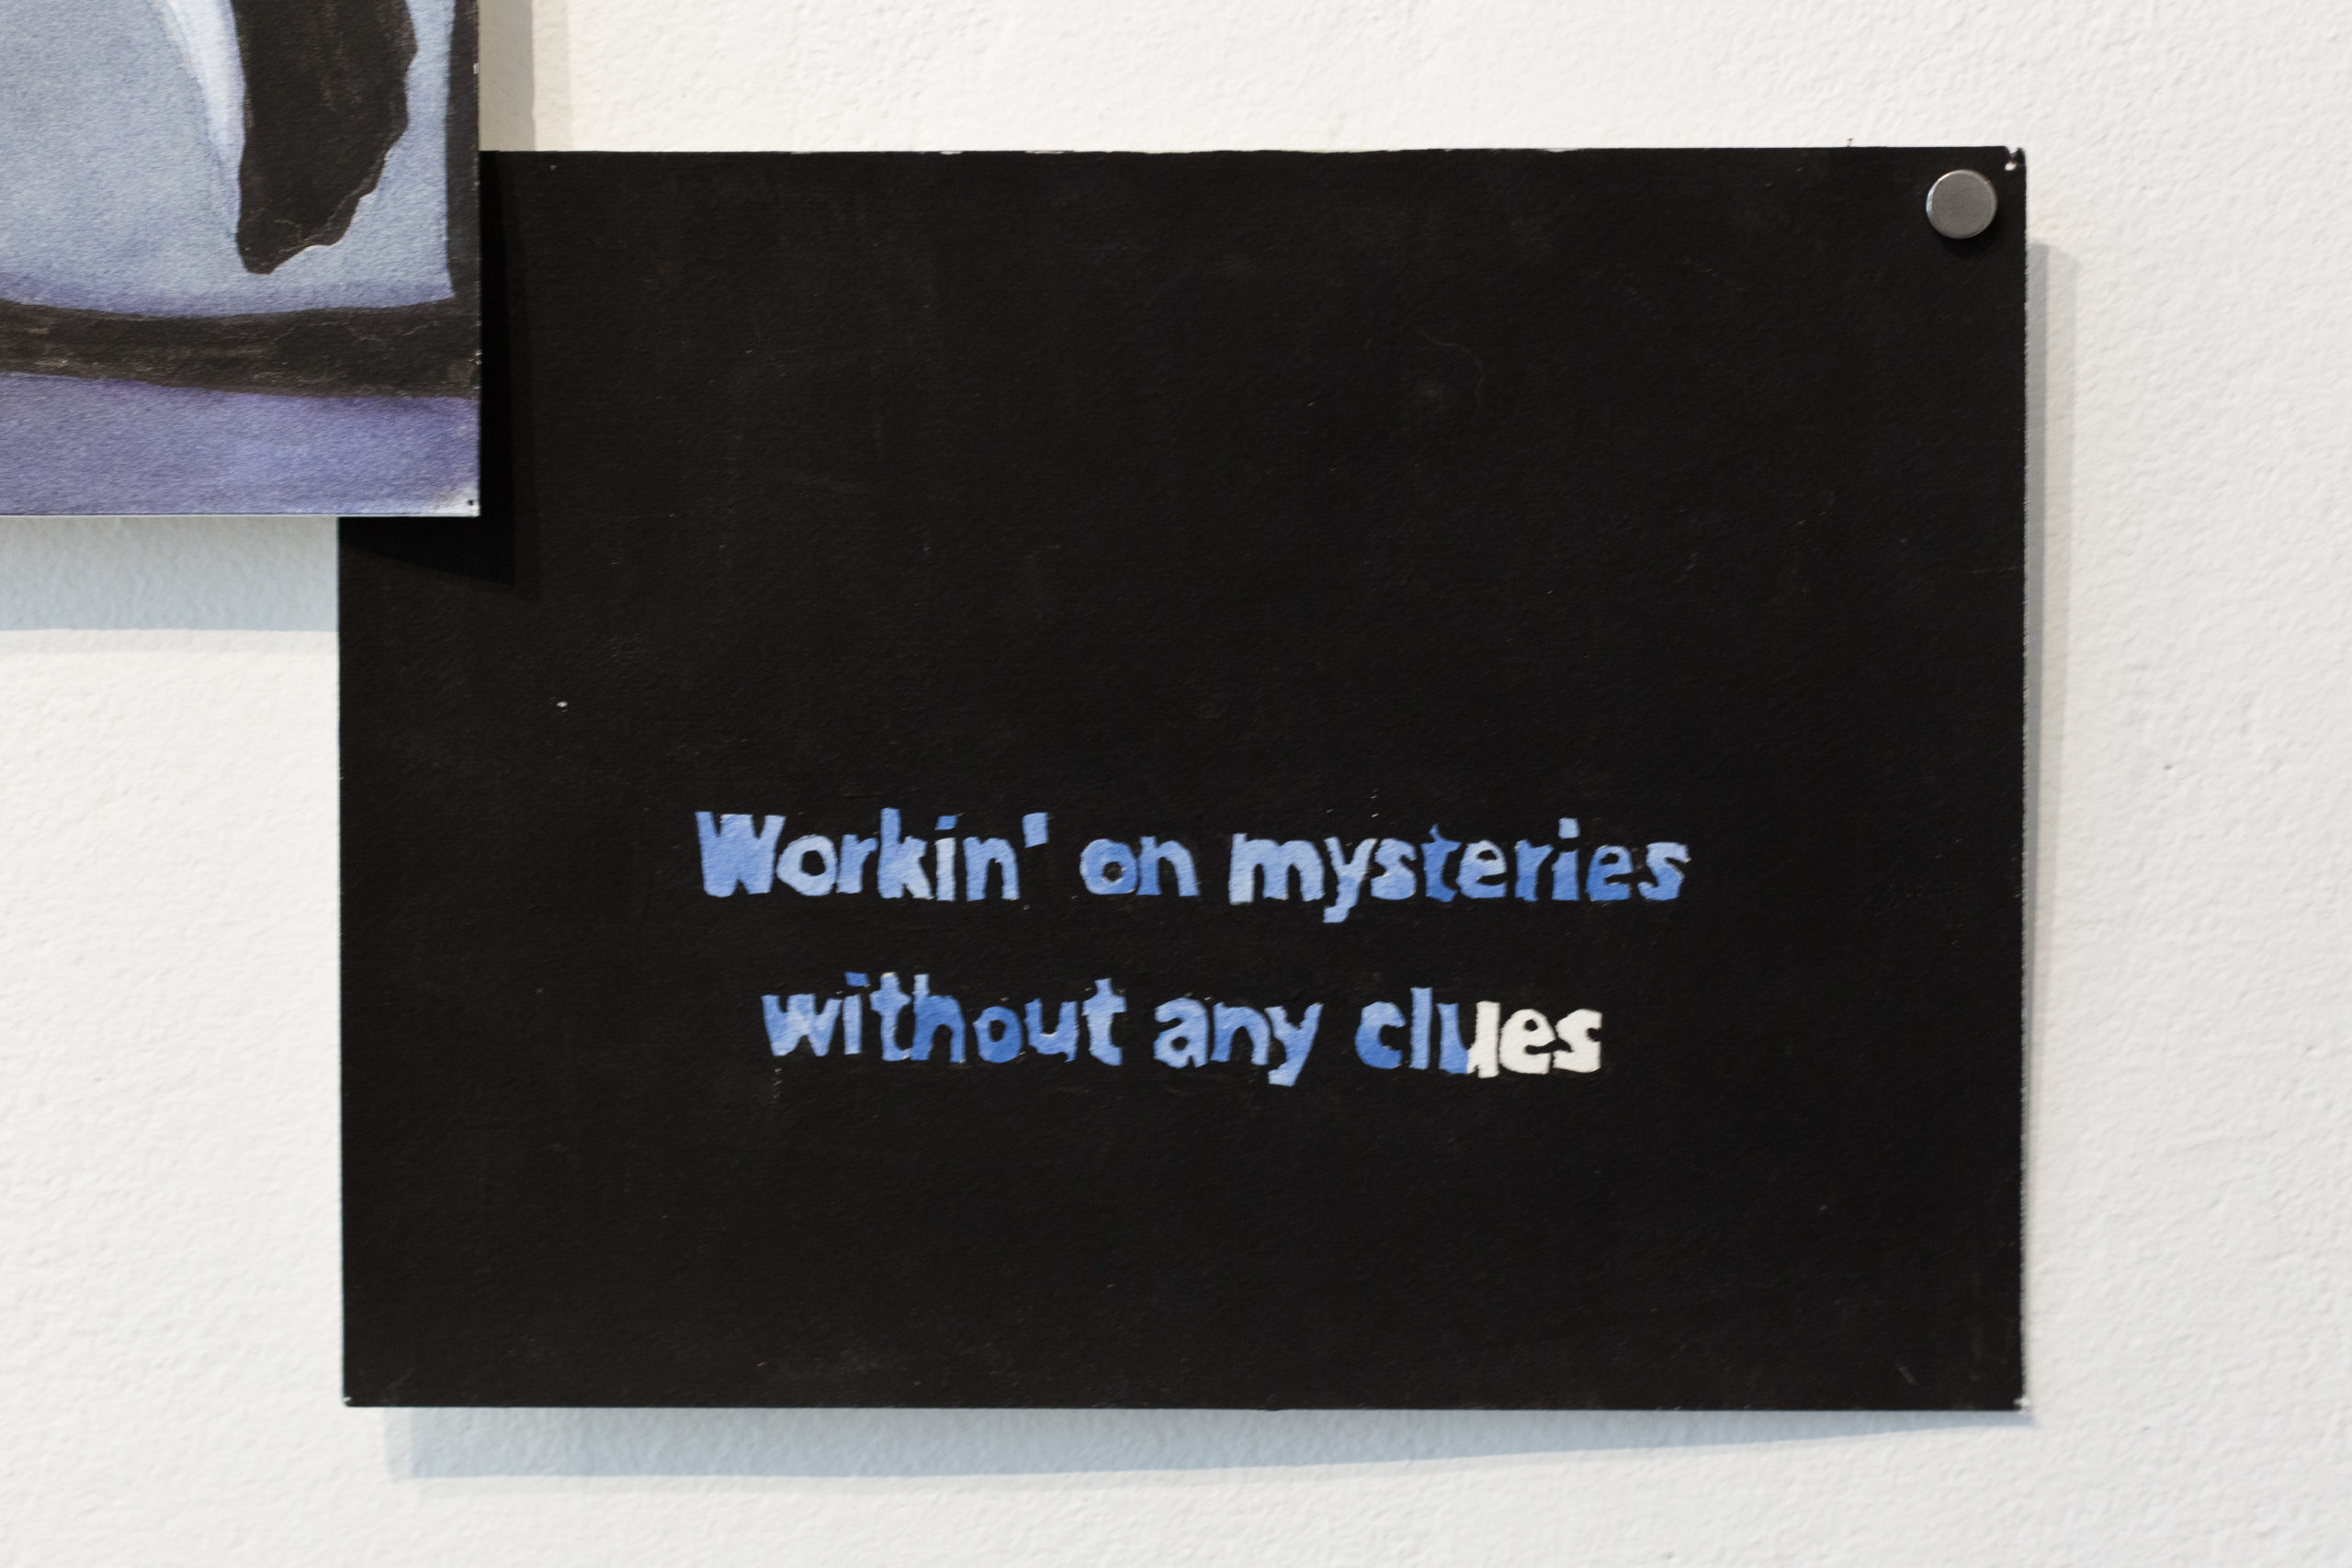 Workin' on mysteries
without any clues